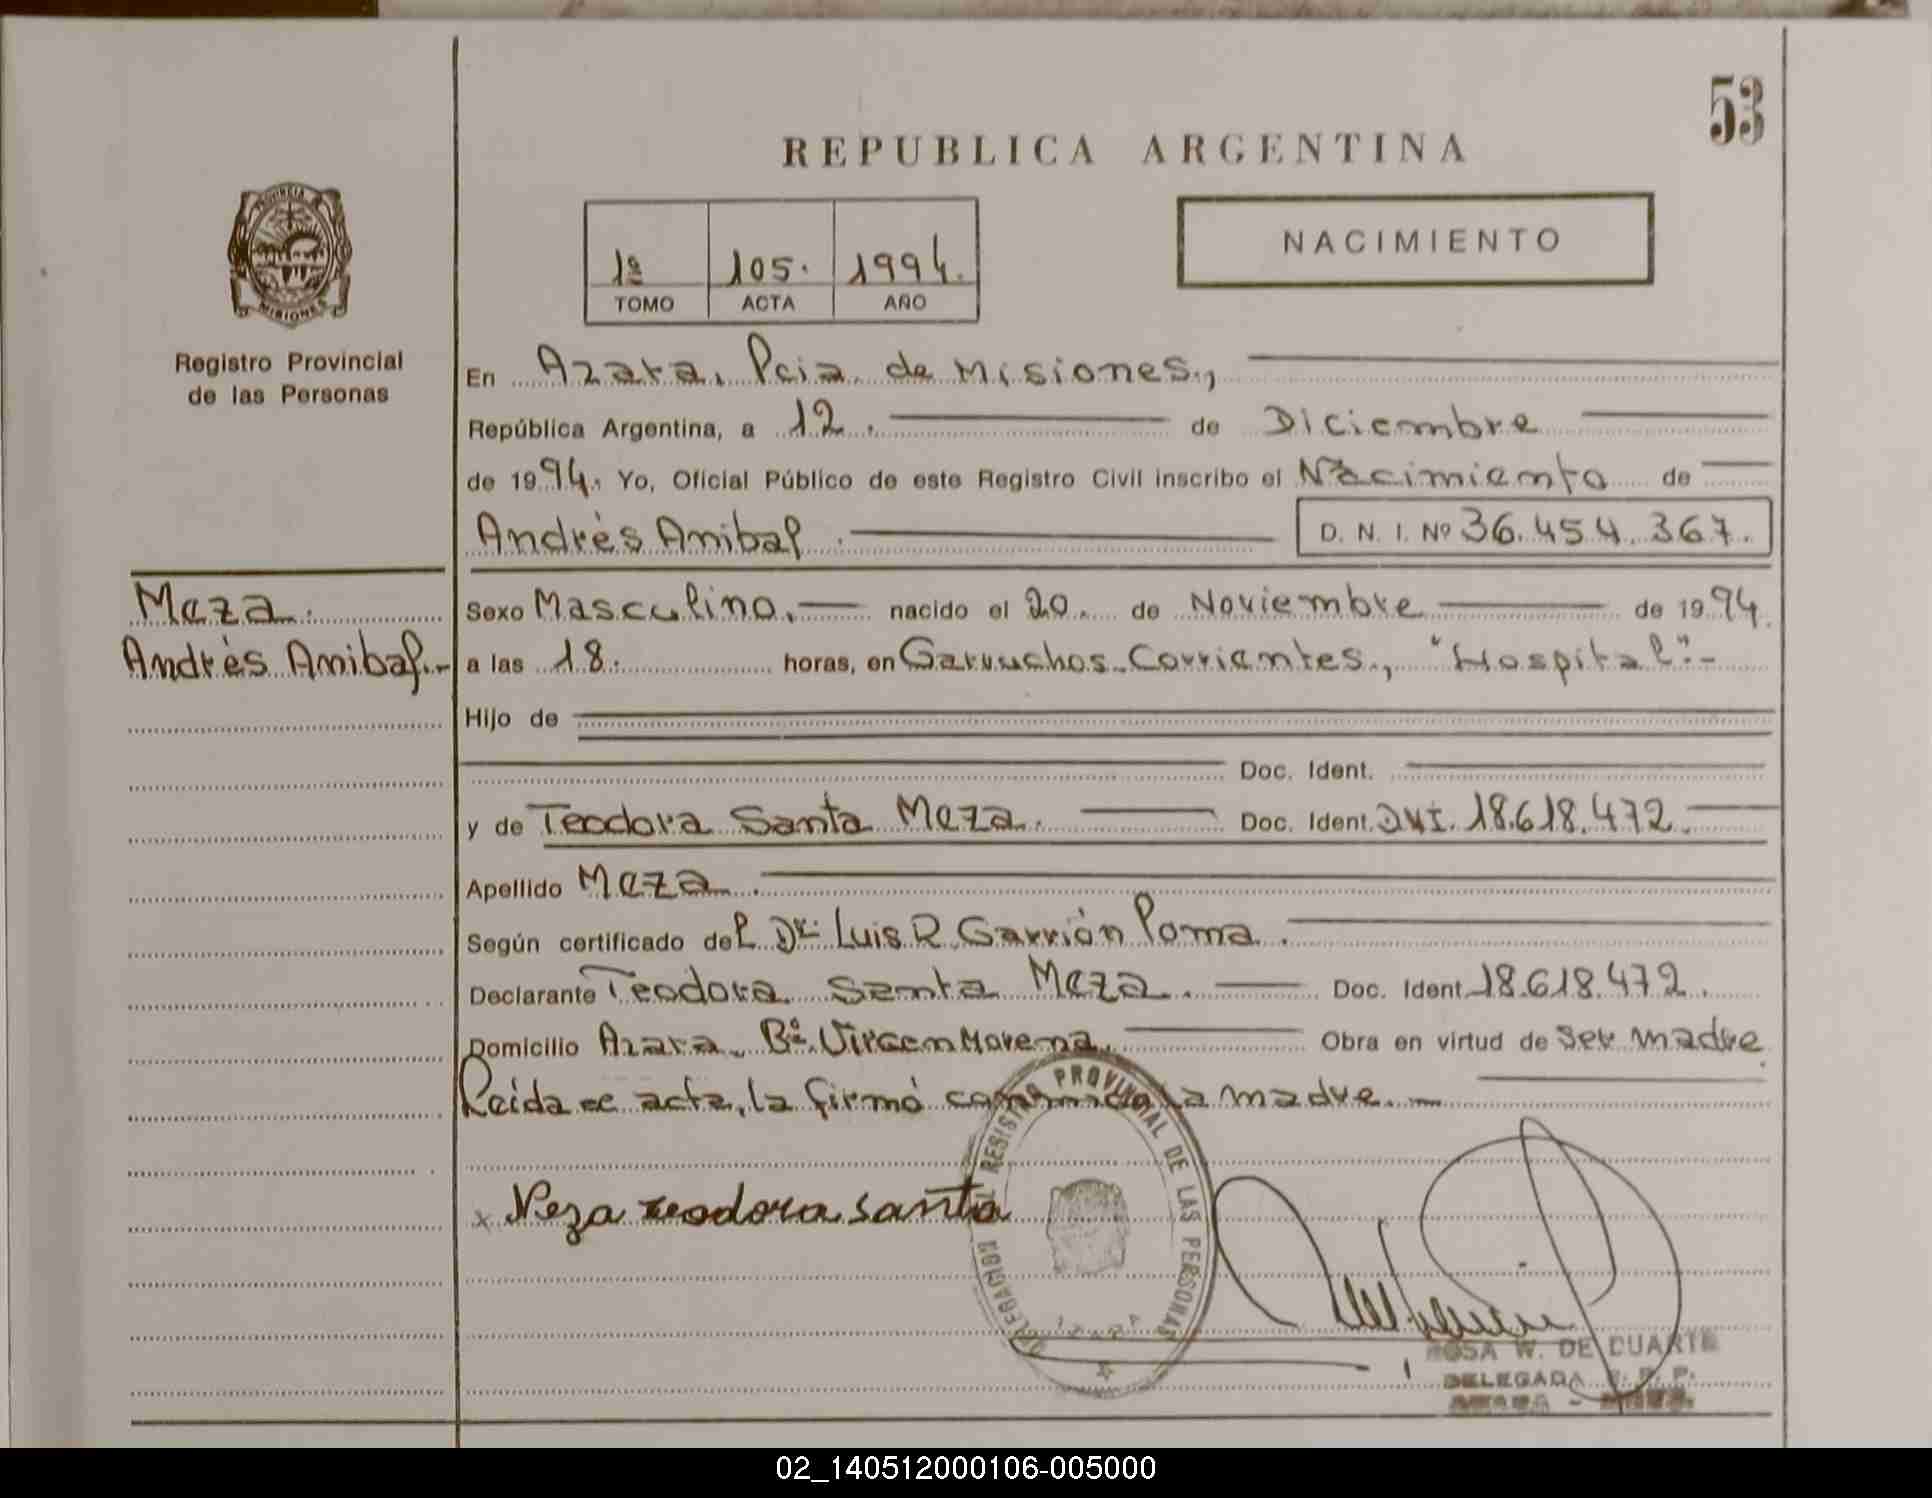 53
REPUBLICA ARGENTINA
PROVINCIA
MISIONES
1º 105. 1994.
TOMO ACTA AÑO
NACIMIENTO
Registro Provincial
de las Personas
En Azara, Pcia de Misiones.,
República Argentina, a 12. de Diciembre
de 1994. Yo, Oficial Público de este Registro Civil inscribo el Nacimiento de
Andrès Anibal. D. N. I. Nº 36.454.367.
Meza.
Andrès Anibal.-
Sexo Masculino. nacido el 20. de Noviembre de 1994.
a las 18. horas, en Garruchos-Corrientes., "Hospital".-
Hijo de
Doc. Ident.
y de Teodora Santa Meza. Doc. Ident. DNI. 18.618.472.
Apellido Meza.
Según certificado del Dr. Luis R. Garrión Poma.
Declarante Teodora Santa Meza. Doc. Ident. 18.618.472.
Domicilio Azara. Bº. Virgen Morena. Obra en virtud de ser madre.
Leída el acta, la firmó conmigo la madre.-
x Meza teodora santa
DELEGACION REGISTRO PROVINCIAL DE LAS PERSONAS
AZARA
ROSA W. DE DUARTE
DELEGADA R. P. P.
02_140512000106-005000